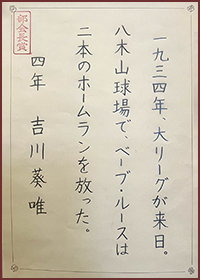 部会長賞
一九三四年、大リーグが来日。
八木山球場で、ベーブ・ルースは
二本のホームランを放った。
四年　吉川葵・唯